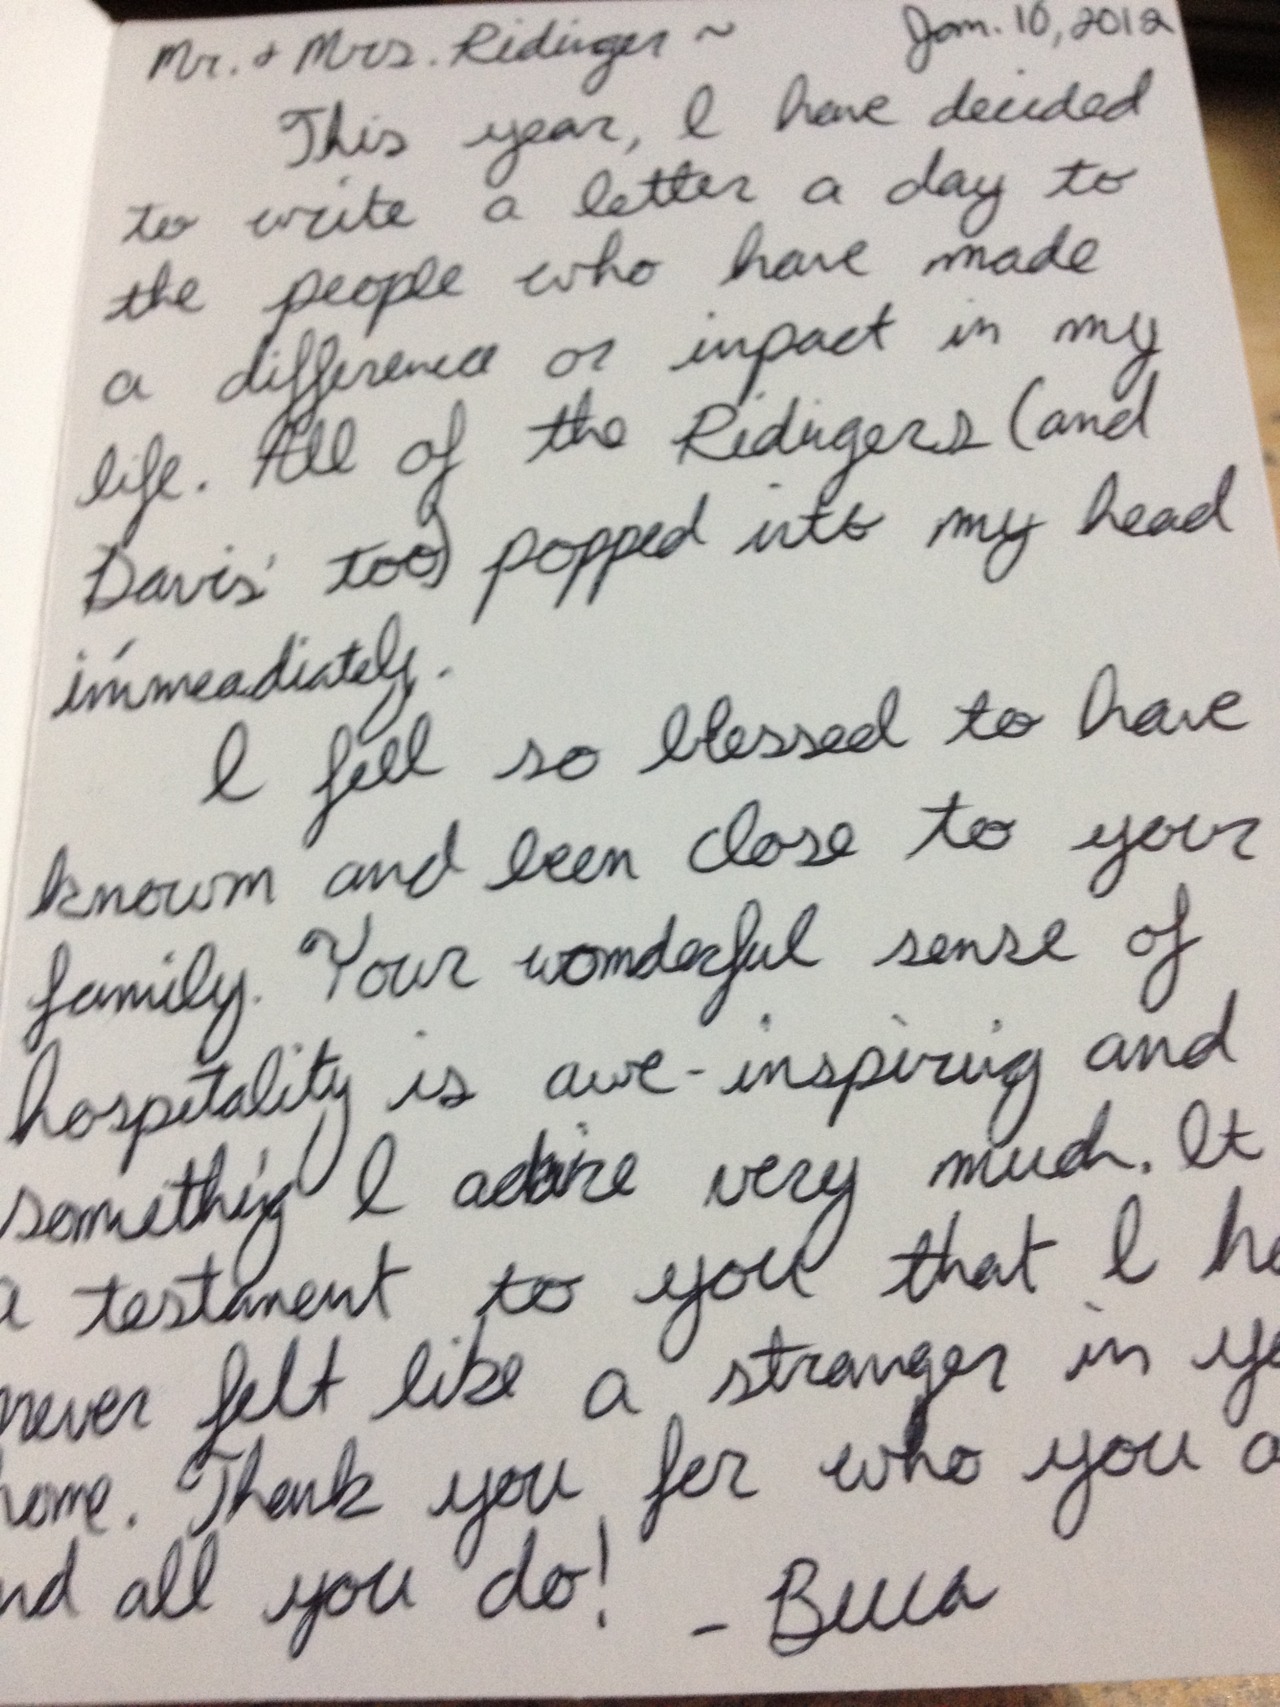 Mr. + Mrs. Ridinger ~ Jan. 10, 2012
This year, I have decided
to write a letter a day to
the people who have made
a difference or inpact in my
life. All of the Ridingers (and
Davis' too) popped into my head
immeadiately.
I fell so blessed to have
known and been close to your
family. Your wonderful sense of
hospitality is awe-inspiring and
something I admire very much. It
a testament to you that I ha
never felt like a stranger in yo
home. Thank you for who you a
nd all you do! - Becca